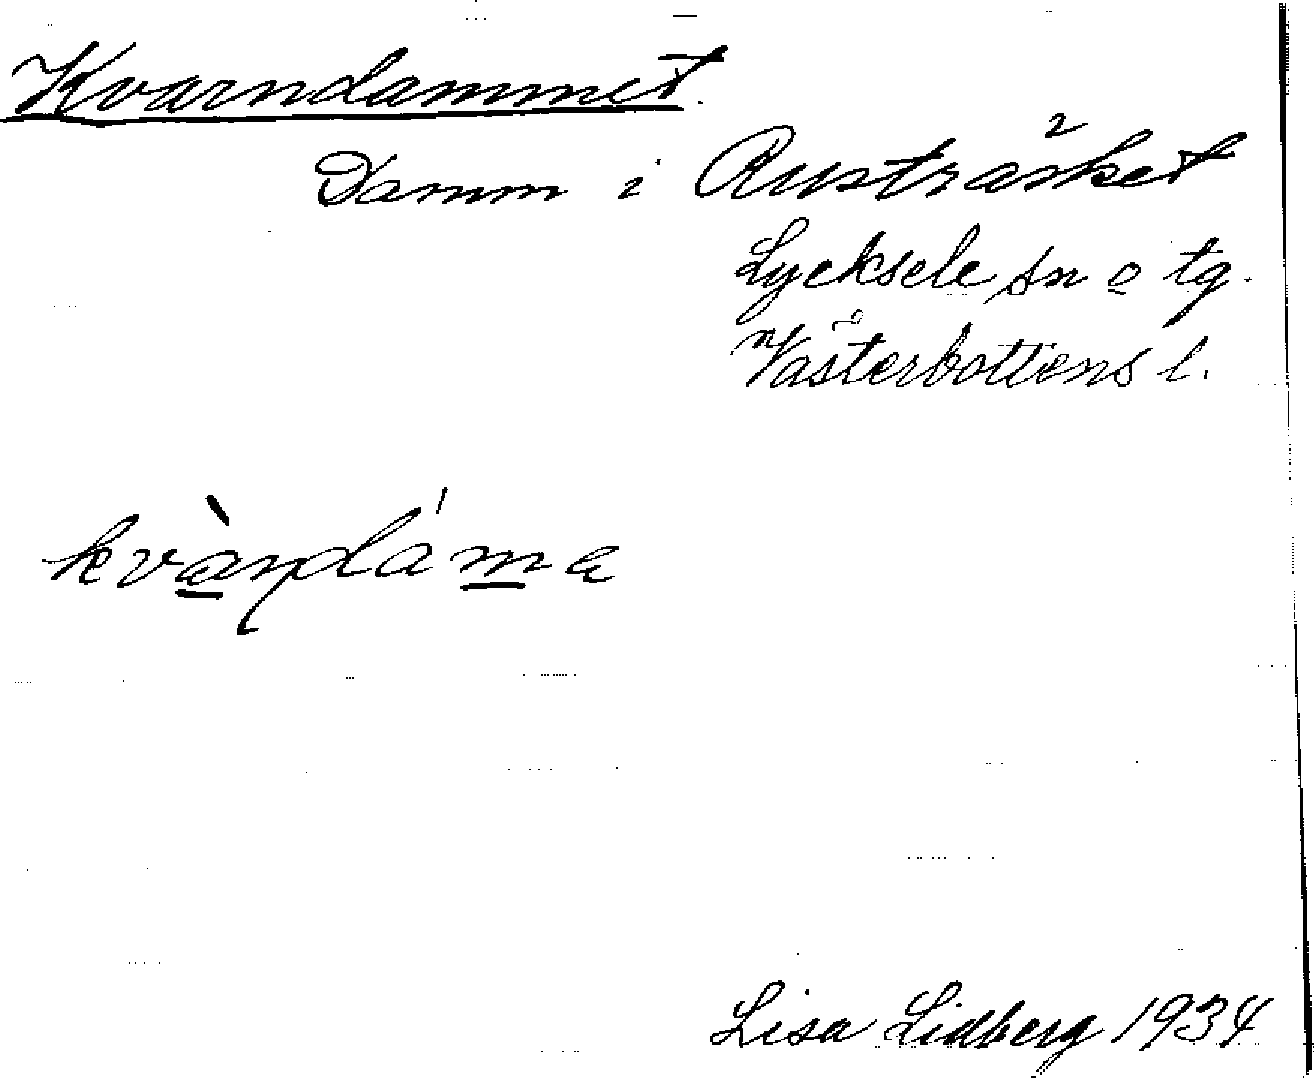 Kvarndammet.
Damm i Rusträsket
Lycksele sn o tg.
Västerbottens l.
kvàṇdáma
Lisa Lidberg 1934